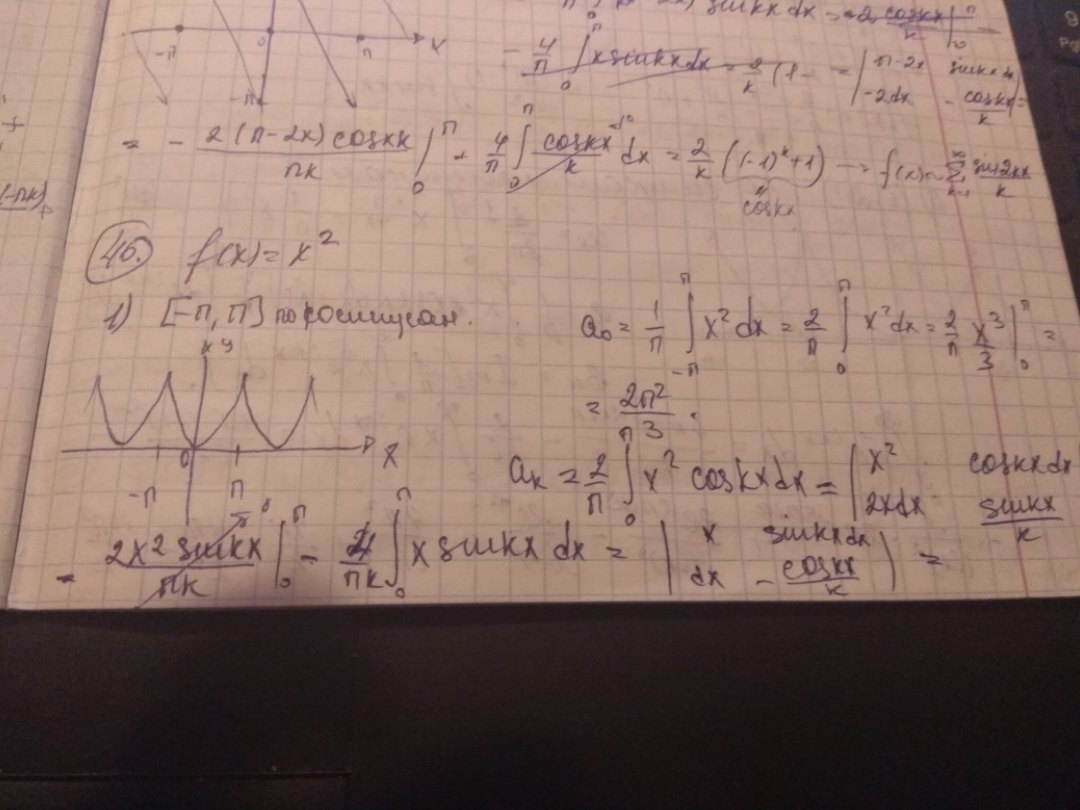 sinkxdx = -2 coskx/k |₀ⁿ -
- 4/π ∫₀ⁿ x sinkx dx = 2/k (1- = | π-2x sinkxdx
-2dx - coskx/k | =
= - 2(π-2x)coskx/πk |₀ⁿ + 4/π ∫₀ⁿ coskx/k dx = 2/k ((-1)ᵏ+1) f(x)~ ∑ sin2kx/k
coskπ
46. f(x) = x²
1) [-π, π] по косинусам.
a₀ = 1/π ∫₋ₙⁿ x²dx = 2/π ∫₀ⁿ x²dx = 2/π x³/3 |₀ⁿ =
y
= 2π²/3 .
0 x
-π π
aₖ = 2/π ∫₀ⁿ x² coskxdx = | x² coskxdx
2xdx sinkx/k
= 2x² sinkx/πk |₀ⁿ - 4/πk ∫₀ⁿ x sinkx dx = | x sinkxdx
dx - coskx/k | =